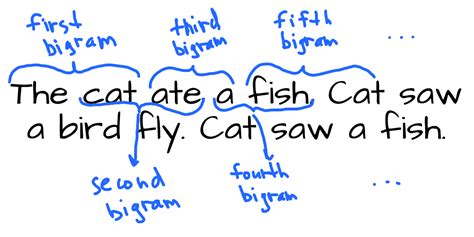 first bigram
third bigram
fifth bigram
...
The cat ate a fish. Cat saw
a bird fly. Cat saw a fish.
second bigram
fourth bigram
...